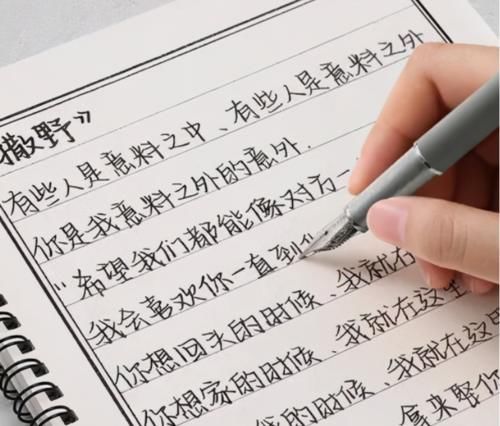 撒野》
有些人是意料之中、有些人是意料之外
你是我意料之外的意外.
"希望我们都能像对方一
我会喜欢你一直到
你想回头的时候、我就在
你想家的时候、我就在这里
我的时候、我就在这里
拿来娶你